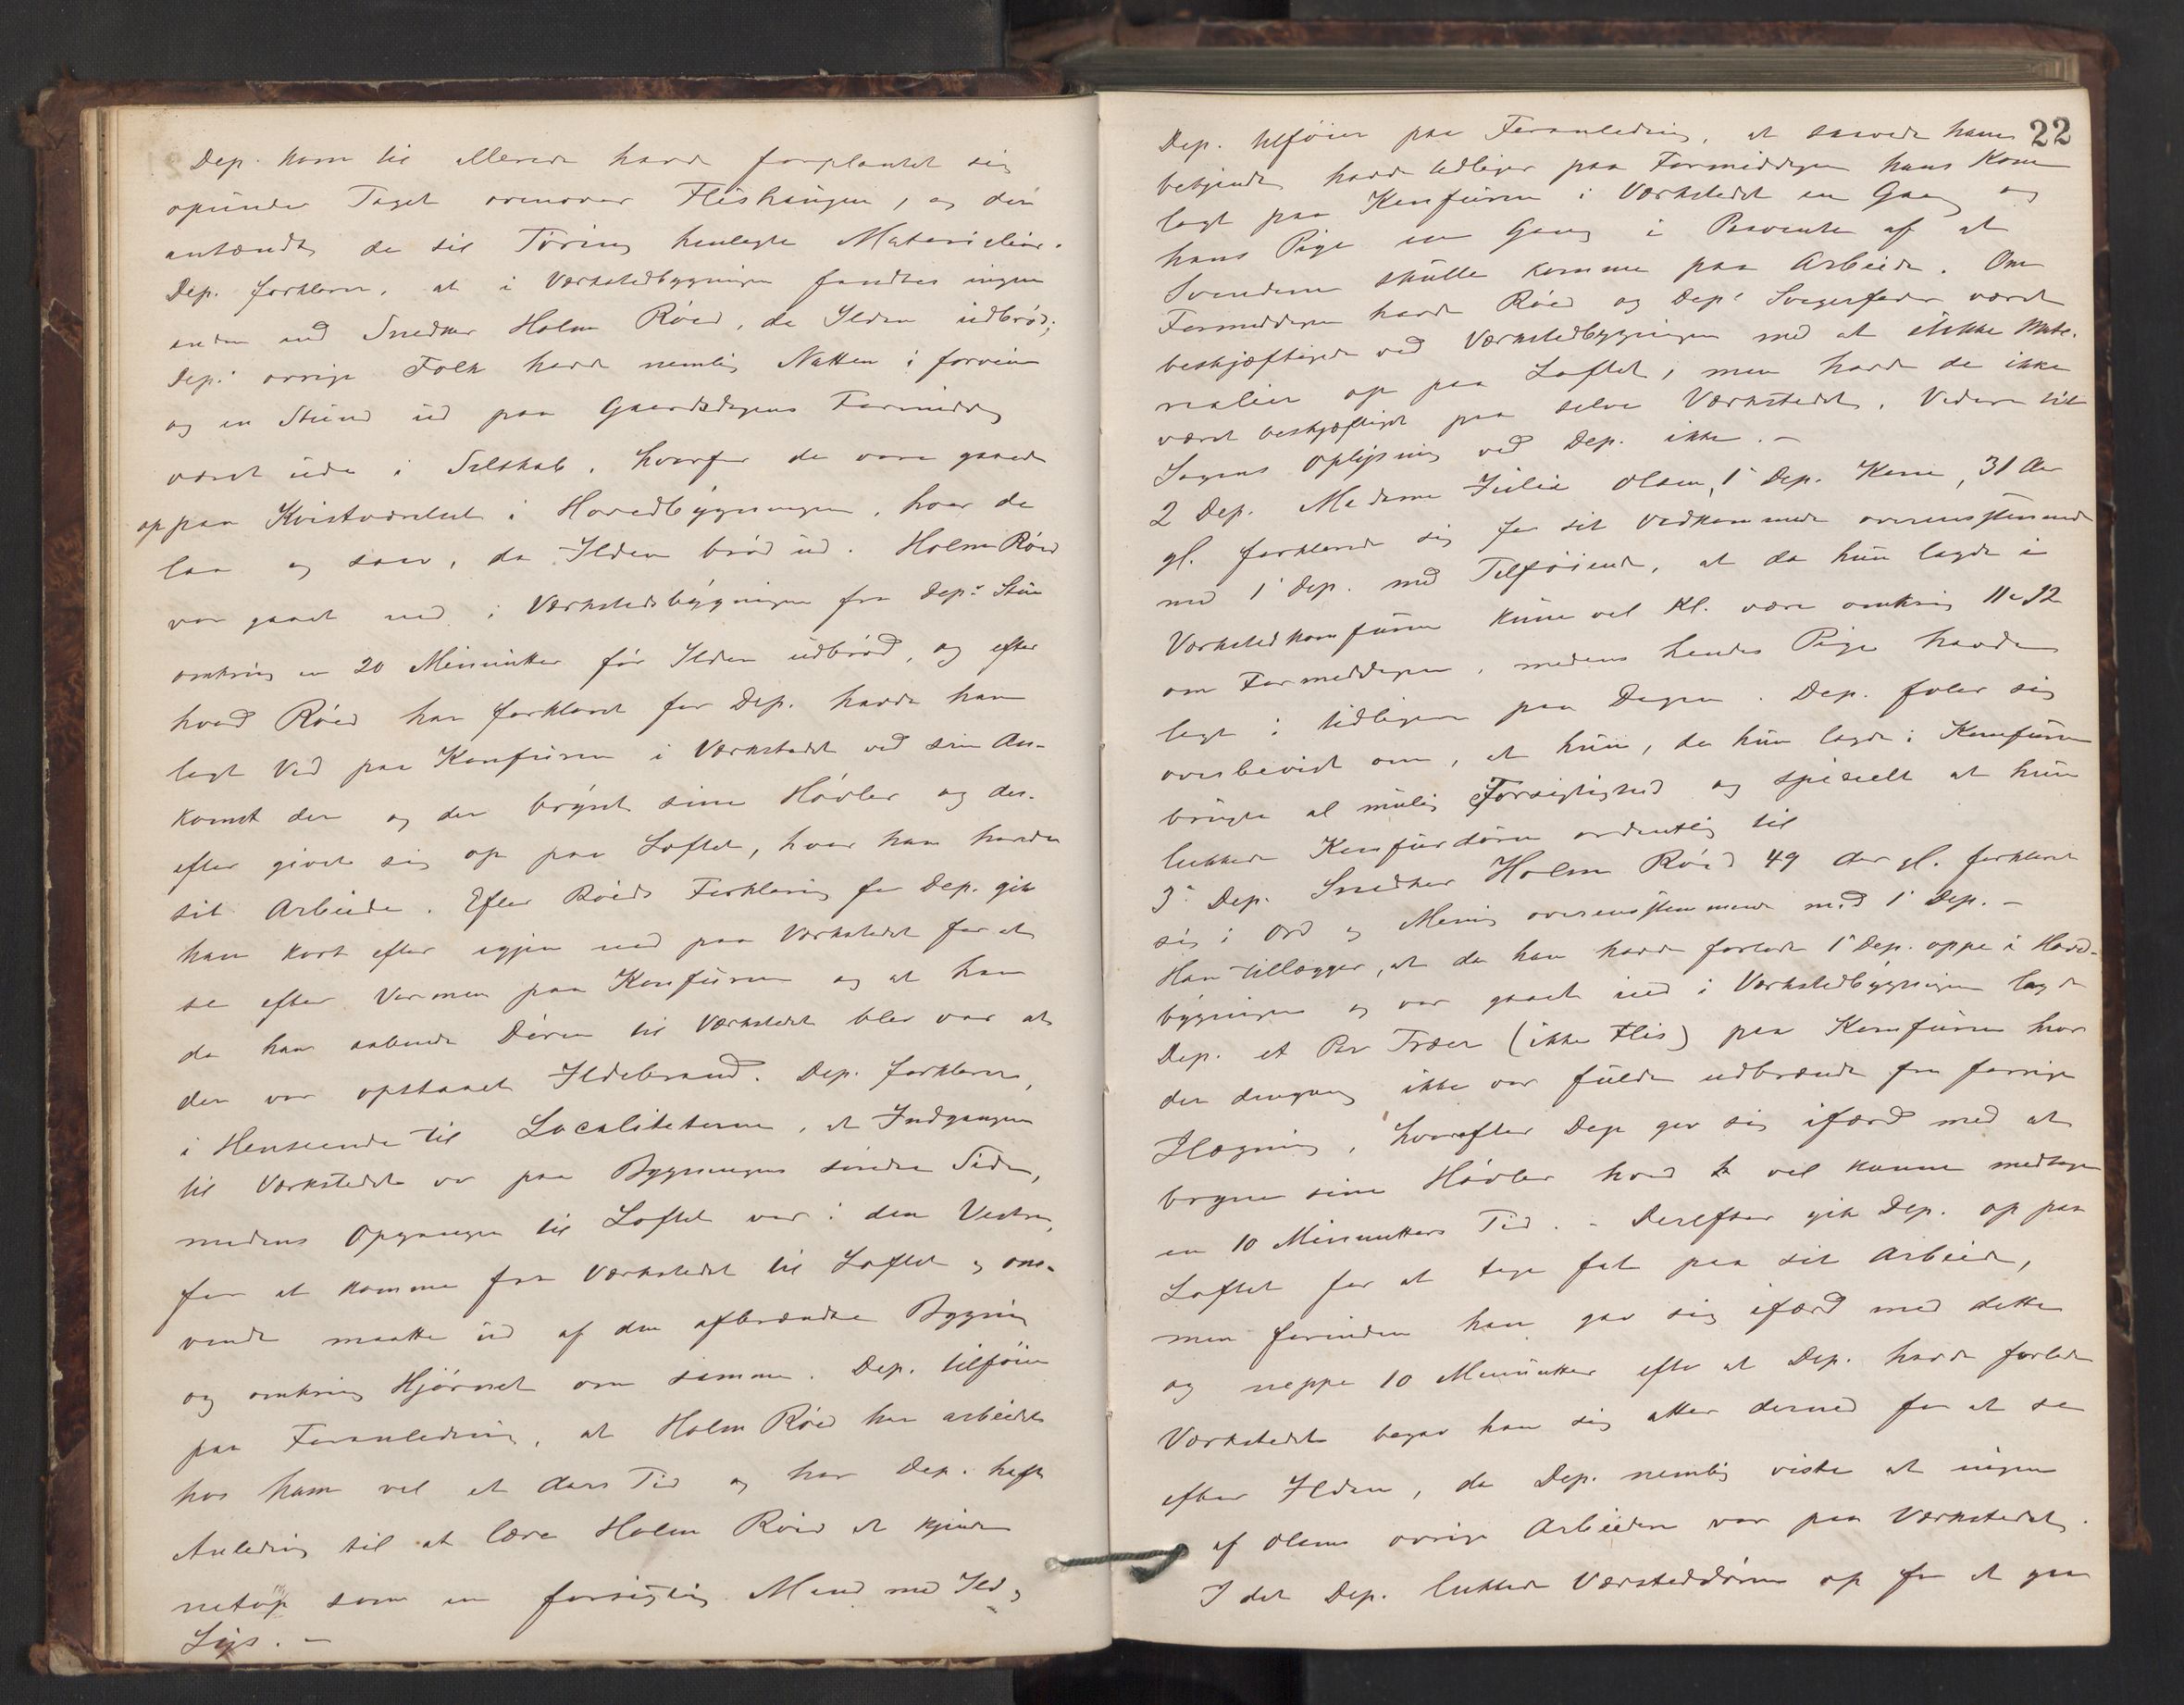 Dep. kom til allerede havde forplantet sig
opunder Taget ovenover Flishaugen, og der
antændt de til Tøring henlagte Materialier.
Dep. forklarer, at i Værkstedbygningen fandtes ingen
anden end Snedker Holm Røed, da Ilden udbrød;
Dep.s øvrige Folk havde nemlig Natten i forveien
og en Stund ud paa Gaarsdagens Formiddag
været ude i Selskab, hvorfor de vare gaaede
op paa Kvistværelset i Hovedbygningen, hvor de
laa og sov, da Ilden brød ud. Holm Røed
var gaaet ned i Værkstedsbygningen fra Dep.s Stue
omkring en 20 Minutter før Ilden udbrød, og efter
hvad Røed har forklaret for Dep. havde han
lagt Ved paa Komfuren i Værkstedet ved sin An-
komst der og der brynt sine Høvler og der-
efter givet sig op paa Loftet, hvor han havde
sit Arbeide. Efter Røeds Forklaring for Dep. gik
han kort efter igjen ned paa Værkstedet for at
se efter Varmen paa Komfuren og at han
da han aabnede Døren til Værkstedet blev var at
der var opstaaet Ildebrand. Dep. forklarer,
i Henseende til Localiteterne, at Indgangen
til Værkstedet var paa Bygningens søndre Side,
medens Opgangen til Loftet var i den Vestre,
for at komme fra Værkstedet til Loftet og om-
vendt maatte ud af den afbrændte Bygning
og omkring Hjørnet om samme. Dep. tilføier
paa Foranledning, at Holm Røed har arbeidet
hos ham vel et Aars Tid og har Dep. havt
Anledning til at lære Holm Røed at kjende
netop som en forsigtig Mand med Ild og
Lys. —
22
Dep. tilføier paa Foranledning, at saavidt ham
bekjendt havde tidligere paa Formiddagen hans Kone
lagt paa Komfuren i Værkstedet en Gang og
hans Pige en Gang i Paavente af at
Svendene skulle komme paa Arbeide. Om
Formiddagen havde Røed og Dep.s Svigerfader været
beskjæftigede ved Værkstedbygningen med at stikke Mate-
rialier op paa Loftet, men havde de ikke
været beskjæftiget paa selve Værkstedet. Videre til
Sagens Oplysning ved Dep. ikke. —
2 Dep. Madame Julie Olsen, 1 Dep. Kone, 31 Aar
gl. forklarede sig for sit Vedkommende overensstemmende
med 1 Dep. med Tilføiende, at da hun lagde i
Værkstedkomfuren kunne vel Kl. være omkring 11 a 12
om Formiddagen, medens hendes Pige havde
lagt i tidligere paa Dagen. Dep. føler sig
overbevist om, at hun, da hun lagde i Komfuren
brugte al mulig Forsigtighed og specielt at hun
lukkede Komfurdøren ordentlig til
3 Dep. Snedker Holm Røed 49 Aar gl. forklarede
sig i Ord og Mening overensstemmende med 1 Dep. —
Han tillægger, at da han havde forladt 1 Dep. oppe i Hoved-
bygningen og var gaaet ned i Værkstedbygningen lagde
Dep. et Par Træer (ikke Flis) paa Komfuren hvor
der dengang ikke var fuldt udbrændt fra forrige
Ilægning, hvorefter Dep gav sig ifærd med at
bryne sine Høvler hvad vel kunne medtage
en 10 Minutters Tid. — Derefter gik Dep. op paa
Loftet for at tage fat paa sit Arbeide,
men forinden han gav sig ifærd med dette
og neppe 10 Minutter efter at Dep. havde forladt
Værkstedet begav han sig atter derned for at se
efter Ilden, da Dep. nemlig vidste at ingen
af Olsens øvrige Arbeidere var paa Værkstedet.
I det Dep. lukkede Værksteddøren op for at gaa